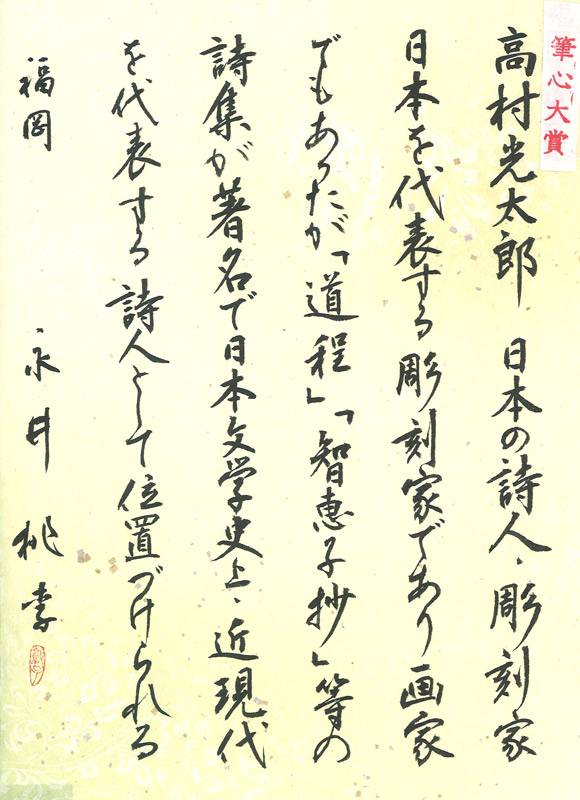 筆心大賞
高村光太郎 日本の詩人、彫刻家
日本を代表する彫刻家であり画家
でもあったが「道程」「智恵子抄」等の
詩集が著名で日本文学史上、近現代
を代表する詩人として位置づけられる
福岡 永井桃李